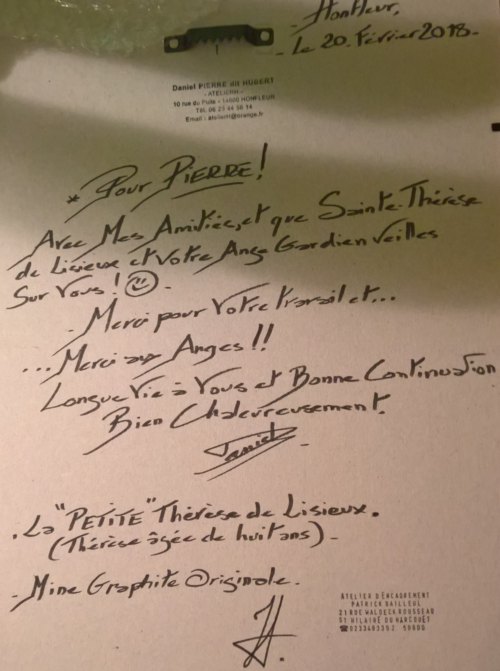 Honfleur,
- Le 20. Février 2018 -
1
Daniel PIERRE dit HUBERT
- ATELIERH -
10 rue du Puits - 14600 HONFLEUR
Tél. 06 23 44 58 14
Email : atelierht@orange.fr
* Pour PIERRE !
Avec Mes Amitiés, et que Sainte-Thérèse
de Lisieux et Votre Ange Gardien veilles
Sur Vous ! -
- Merci pour Votre travail et...
... Merci aux Anges !!
Longue Vie à Vous et Bonne Continuation
Bien Chaleureusement.
Daniel -
. La "PETITE" Thérèse de Lisieux.
(Thérèse âgée de huit ans) -
- Mine Graphite Originale.
H.
ATELIER D'ENCADREMENT
PATRICK BAILLEUL
21 RUE WALDECK ROUSSEAU
ST HILAIRE DU HARCOUET
☎0233493392 50600